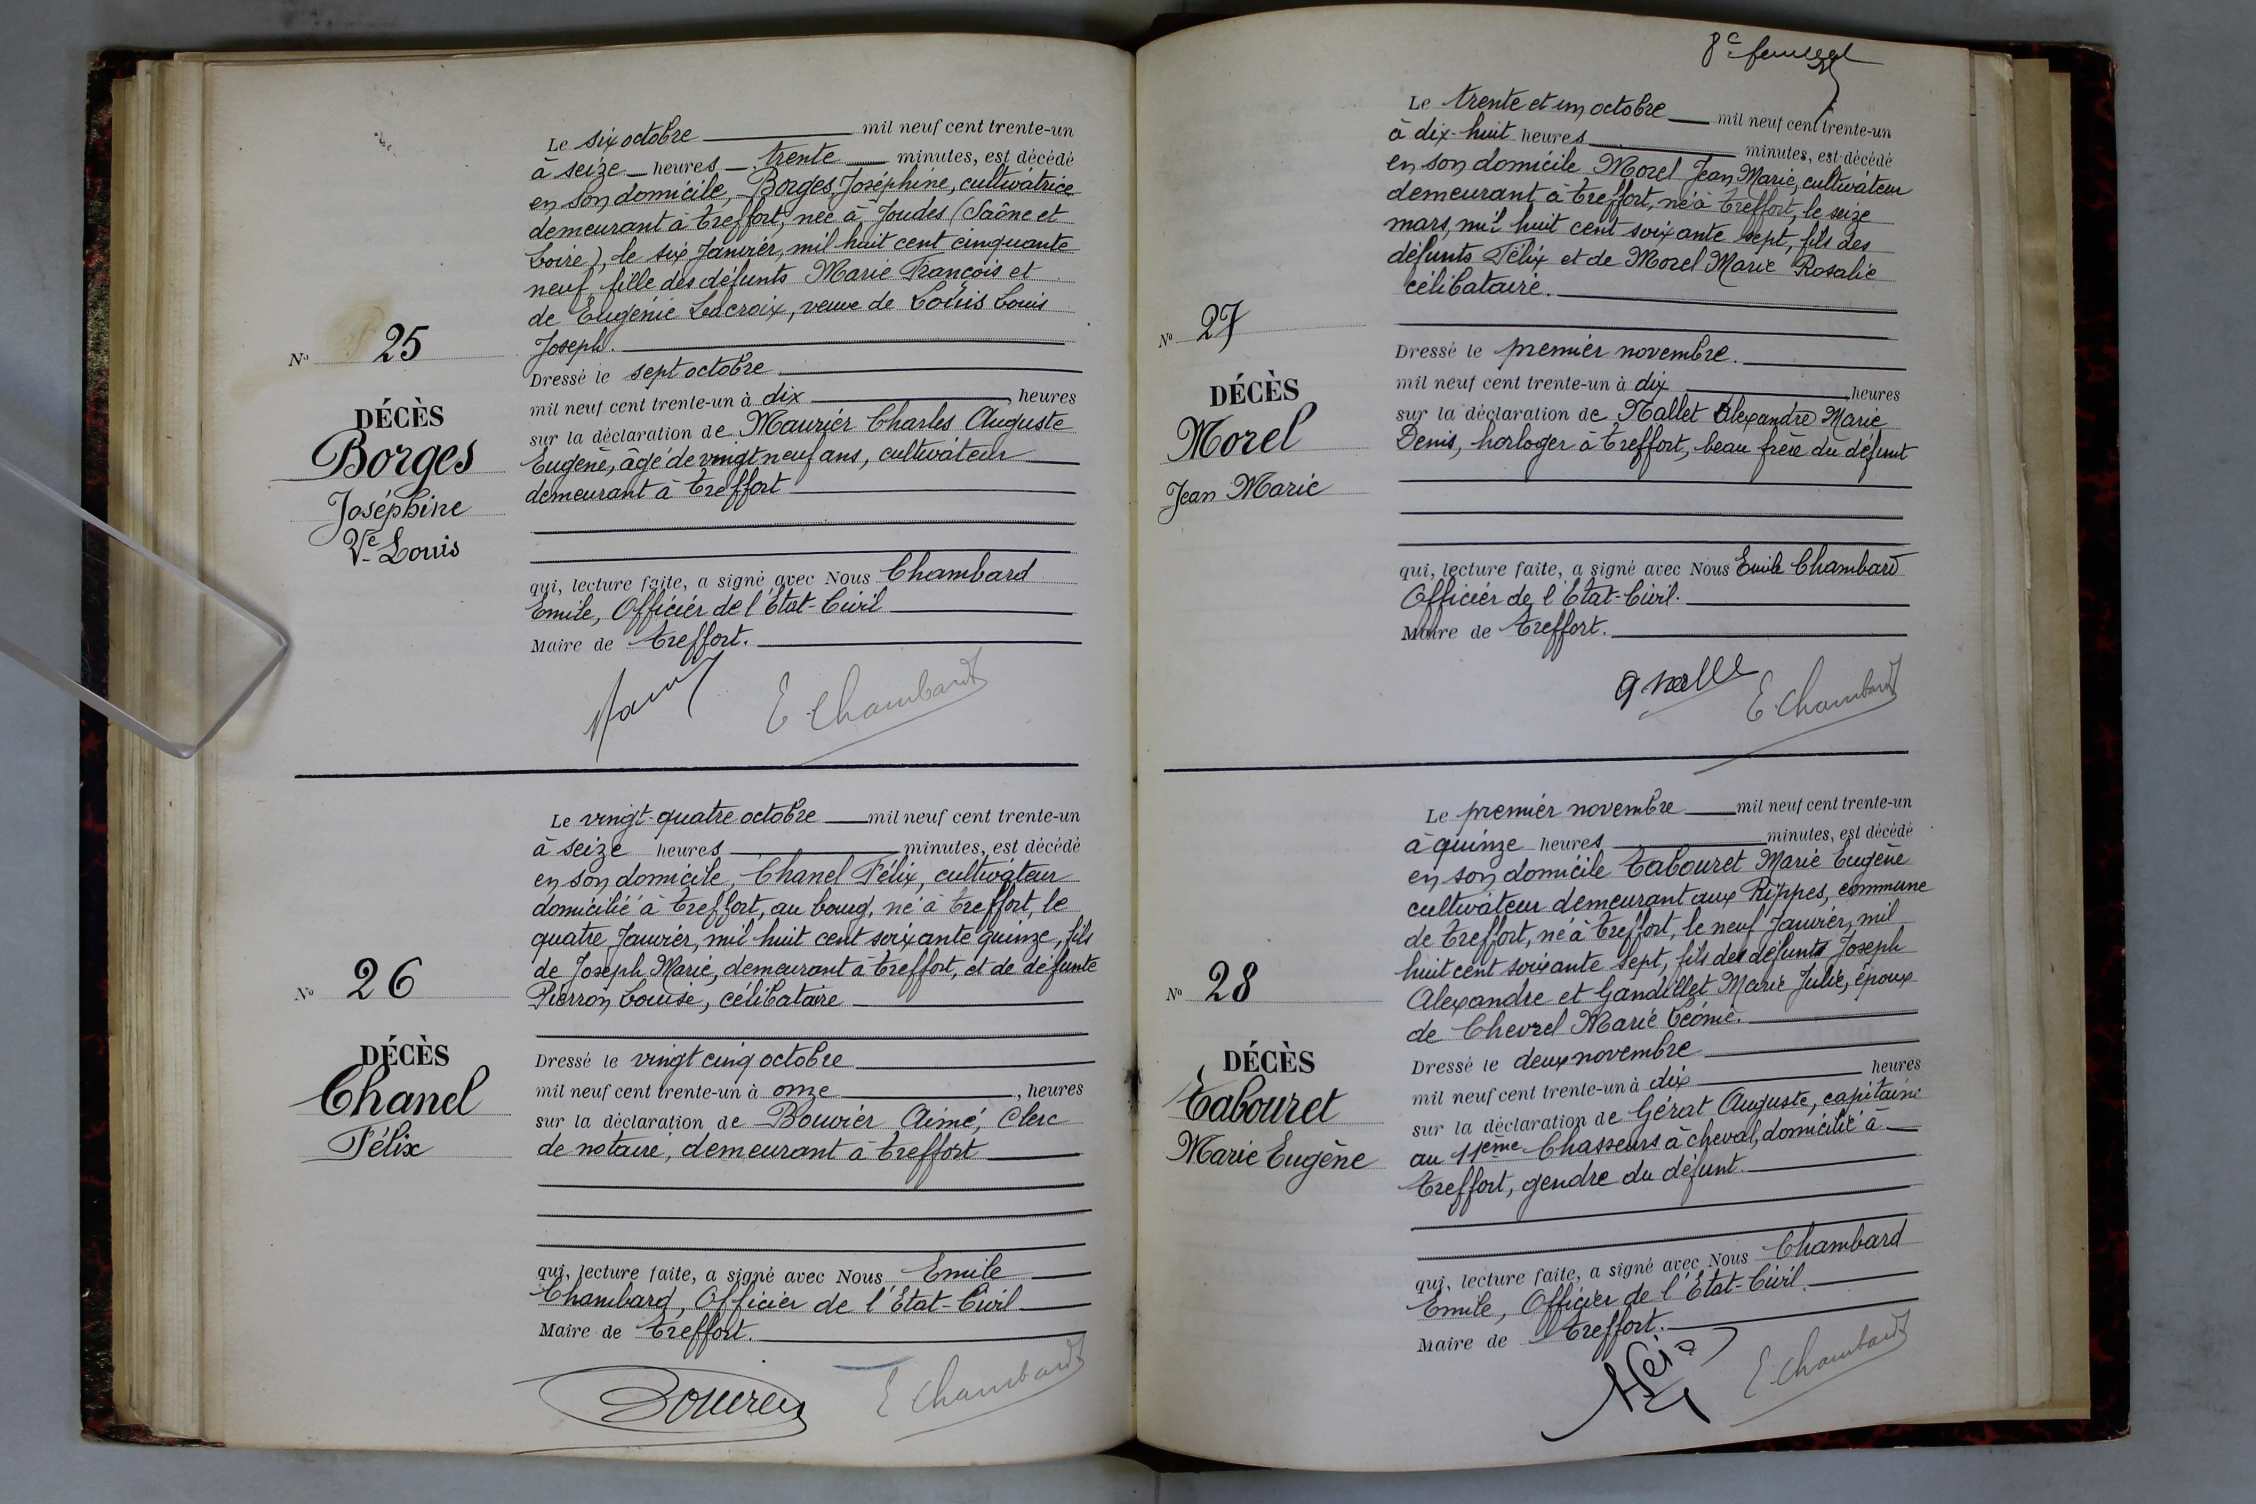 Le six octobre mil neuf cent trente-un
à seize heures trente minutes, est décédé
en son domicile, Borges Joséphine, cultivatrice
demeurant à Treffort, née à Joudes (Saône et
Loire), le six Janvier, mil huit cent cinquante
neuf, fille des défunts Marie François et
de Eugénie Lacroix, veuve de Louis Louis
Joseph.
Nº 25
Dressé le sept octobre
mil neuf cent trente-un à dix heures
DÉCÈS
sur la déclaration de Maurier Charles Auguste
Borges
Eugène, âgé de vingt neuf ans, cultivateur
demeurant à Treffort
Joséphine
Ve Louis
qui, lecture faite, a signé avec Nous Chambard
Emile, Officier de l'Etat-Civil
Maire de Treffort.
E. Chambard
Le vingt-quatre octobre mil neuf cent trente-un
à seize heures minutes, est décédé
en son domicile, Chanel Félix, cultivateur
domicilié à Treffort, au bourg, né à Treffort, le
quatre Janvier, mil huit cent soixante quinze, fils
de Joseph Marie, demeurant à Treffort, et de défunte
Pierron Louise, célibataire
Nº 26
DÉCÈS
Chanel
Félix
Dressé le vingt cinq octobre
mil neuf cent trente-un à onze, heures
sur la déclaration de Bouvier Aimé, Clerc
de notaire, demeurant à Treffort
qui, lecture faite, a signé avec Nous Emile
Chambard, Officier de l'Etat-Civil
Maire de Treffort.
E. Chambard
8e
Le trente et un octobre mil neuf cent trente-un
à dix-huit heures minutes, est décédé
en son domicile Morel Jean Marie, cultivateur
demeurant à Treffort, né à Treffort, le seize
mars, mil huit cent soixante sept, fils des
défunts Félix et de Morel Marie Rosalie
célibataire.
Nº 27
DÉCÈS
Morel
Jean Marie
Dressé le premier novembre.
mil neuf cent trente-un à dix, heures
sur la déclaration de Nallet Alexandre Marie
Denis, horloger à Treffort, beau frère du défunt
qui, lecture faite, a signé avec Nous Emile Chambard
Officier de l'Etat-Civil.
Maire de Treffort.
E. Chambard
Le premier novembre mil neuf cent trente-un
à quinze heures minutes, est décédé
en son domicile Tabouret Marie Eugène
cultivateur demeurant aux Rippes, commune
de Treffort, né à Treffort, le neuf Janvier, mil
huit cent soixante sept, fils des défunts Joseph
Alexandre et Gandillet Marie Julie, époux
de Chevrel Marie Léonie.
Nº 28
DÉCÈS
Tabouret
Marie Eugène
Dressé le deux novembre
mil neuf cent trente-un à dix heures
sur la déclaration de Gérat Auguste, capitaine
au 11ème Chasseurs à cheval, domicilié à
Treffort, gendre du défunt.
qui, lecture faite, a signé avec Nous Chambard
Emile, Officier de l'Etat-Civil.
Maire de Treffort.
E. Chambard